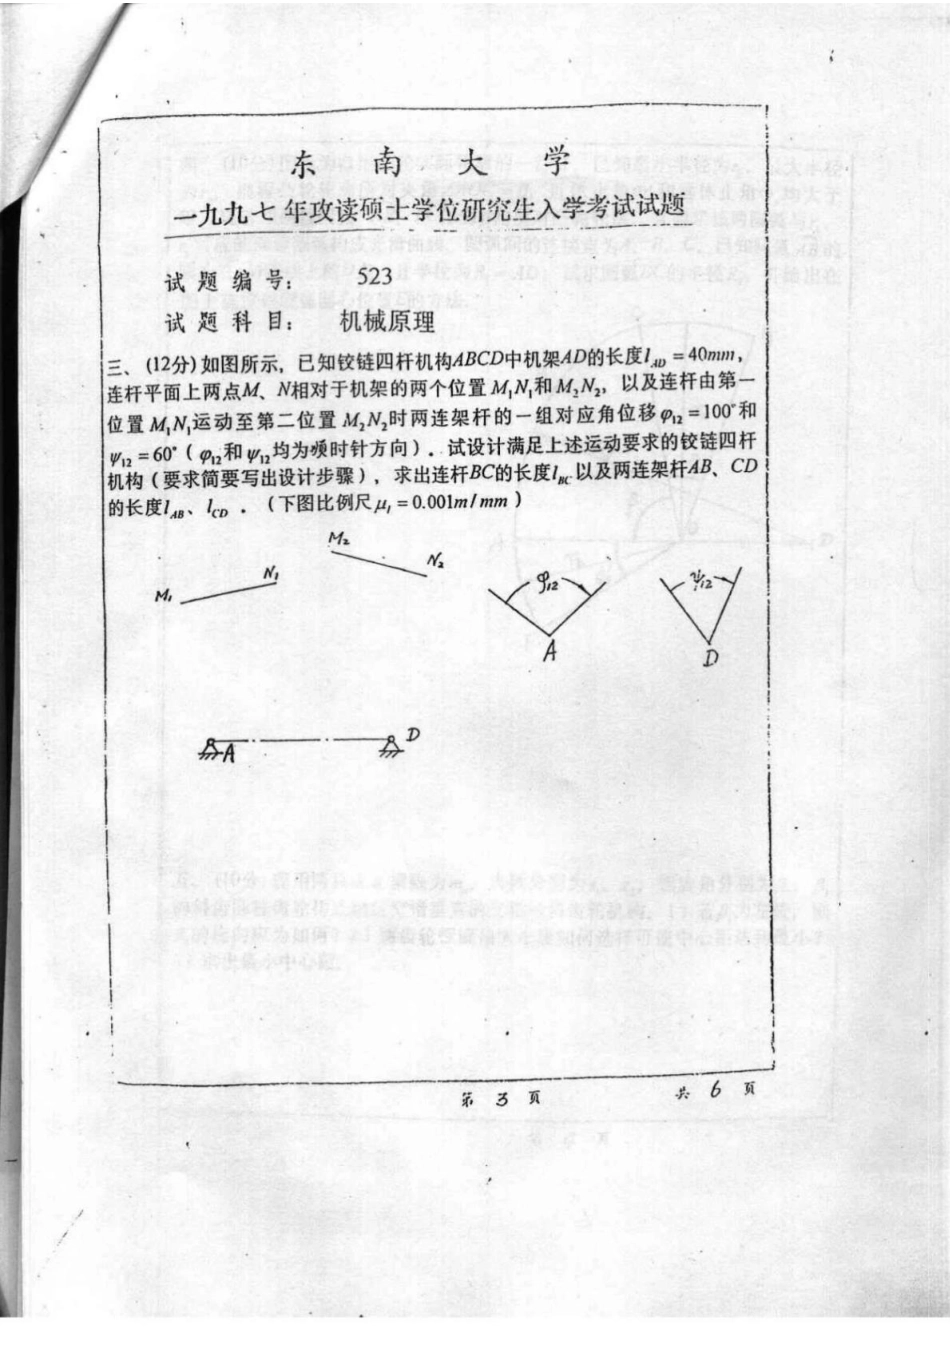 东 南 大 学
一九九七年攻读硕士学位研究生入学考试试题
试题编号: 523
试题科目: 机械原理
三、(12分)如图所示，已知铰链四杆机构ABCD中机架AD的长度l_AD = 40mm，
连杆平面上两点M、N相对于机架的两个位置M₁N₁和M₂N₂，以及连杆由第一
位置M₁N₁运动至第二位置M₂N₂时两连架杆的一组对应角位移φ₁₂ = 100°和
ψ₁₂ = 60°(φ₁₂和ψ₁₂均为顺时针方向). 试设计满足上述运动要求的铰链四杆
机构(要求简要写出设计步骤)，求出连杆BC的长度l_BC以及两连架杆AB、CD
的长度l_AB、l_CD. (下图比例尺μ_l = 0.001m/mm)
M₂
N₂
N₁
M₁
φ₁₂
ψ₁₂
A
D
A
D
第 3 页 共 6 页